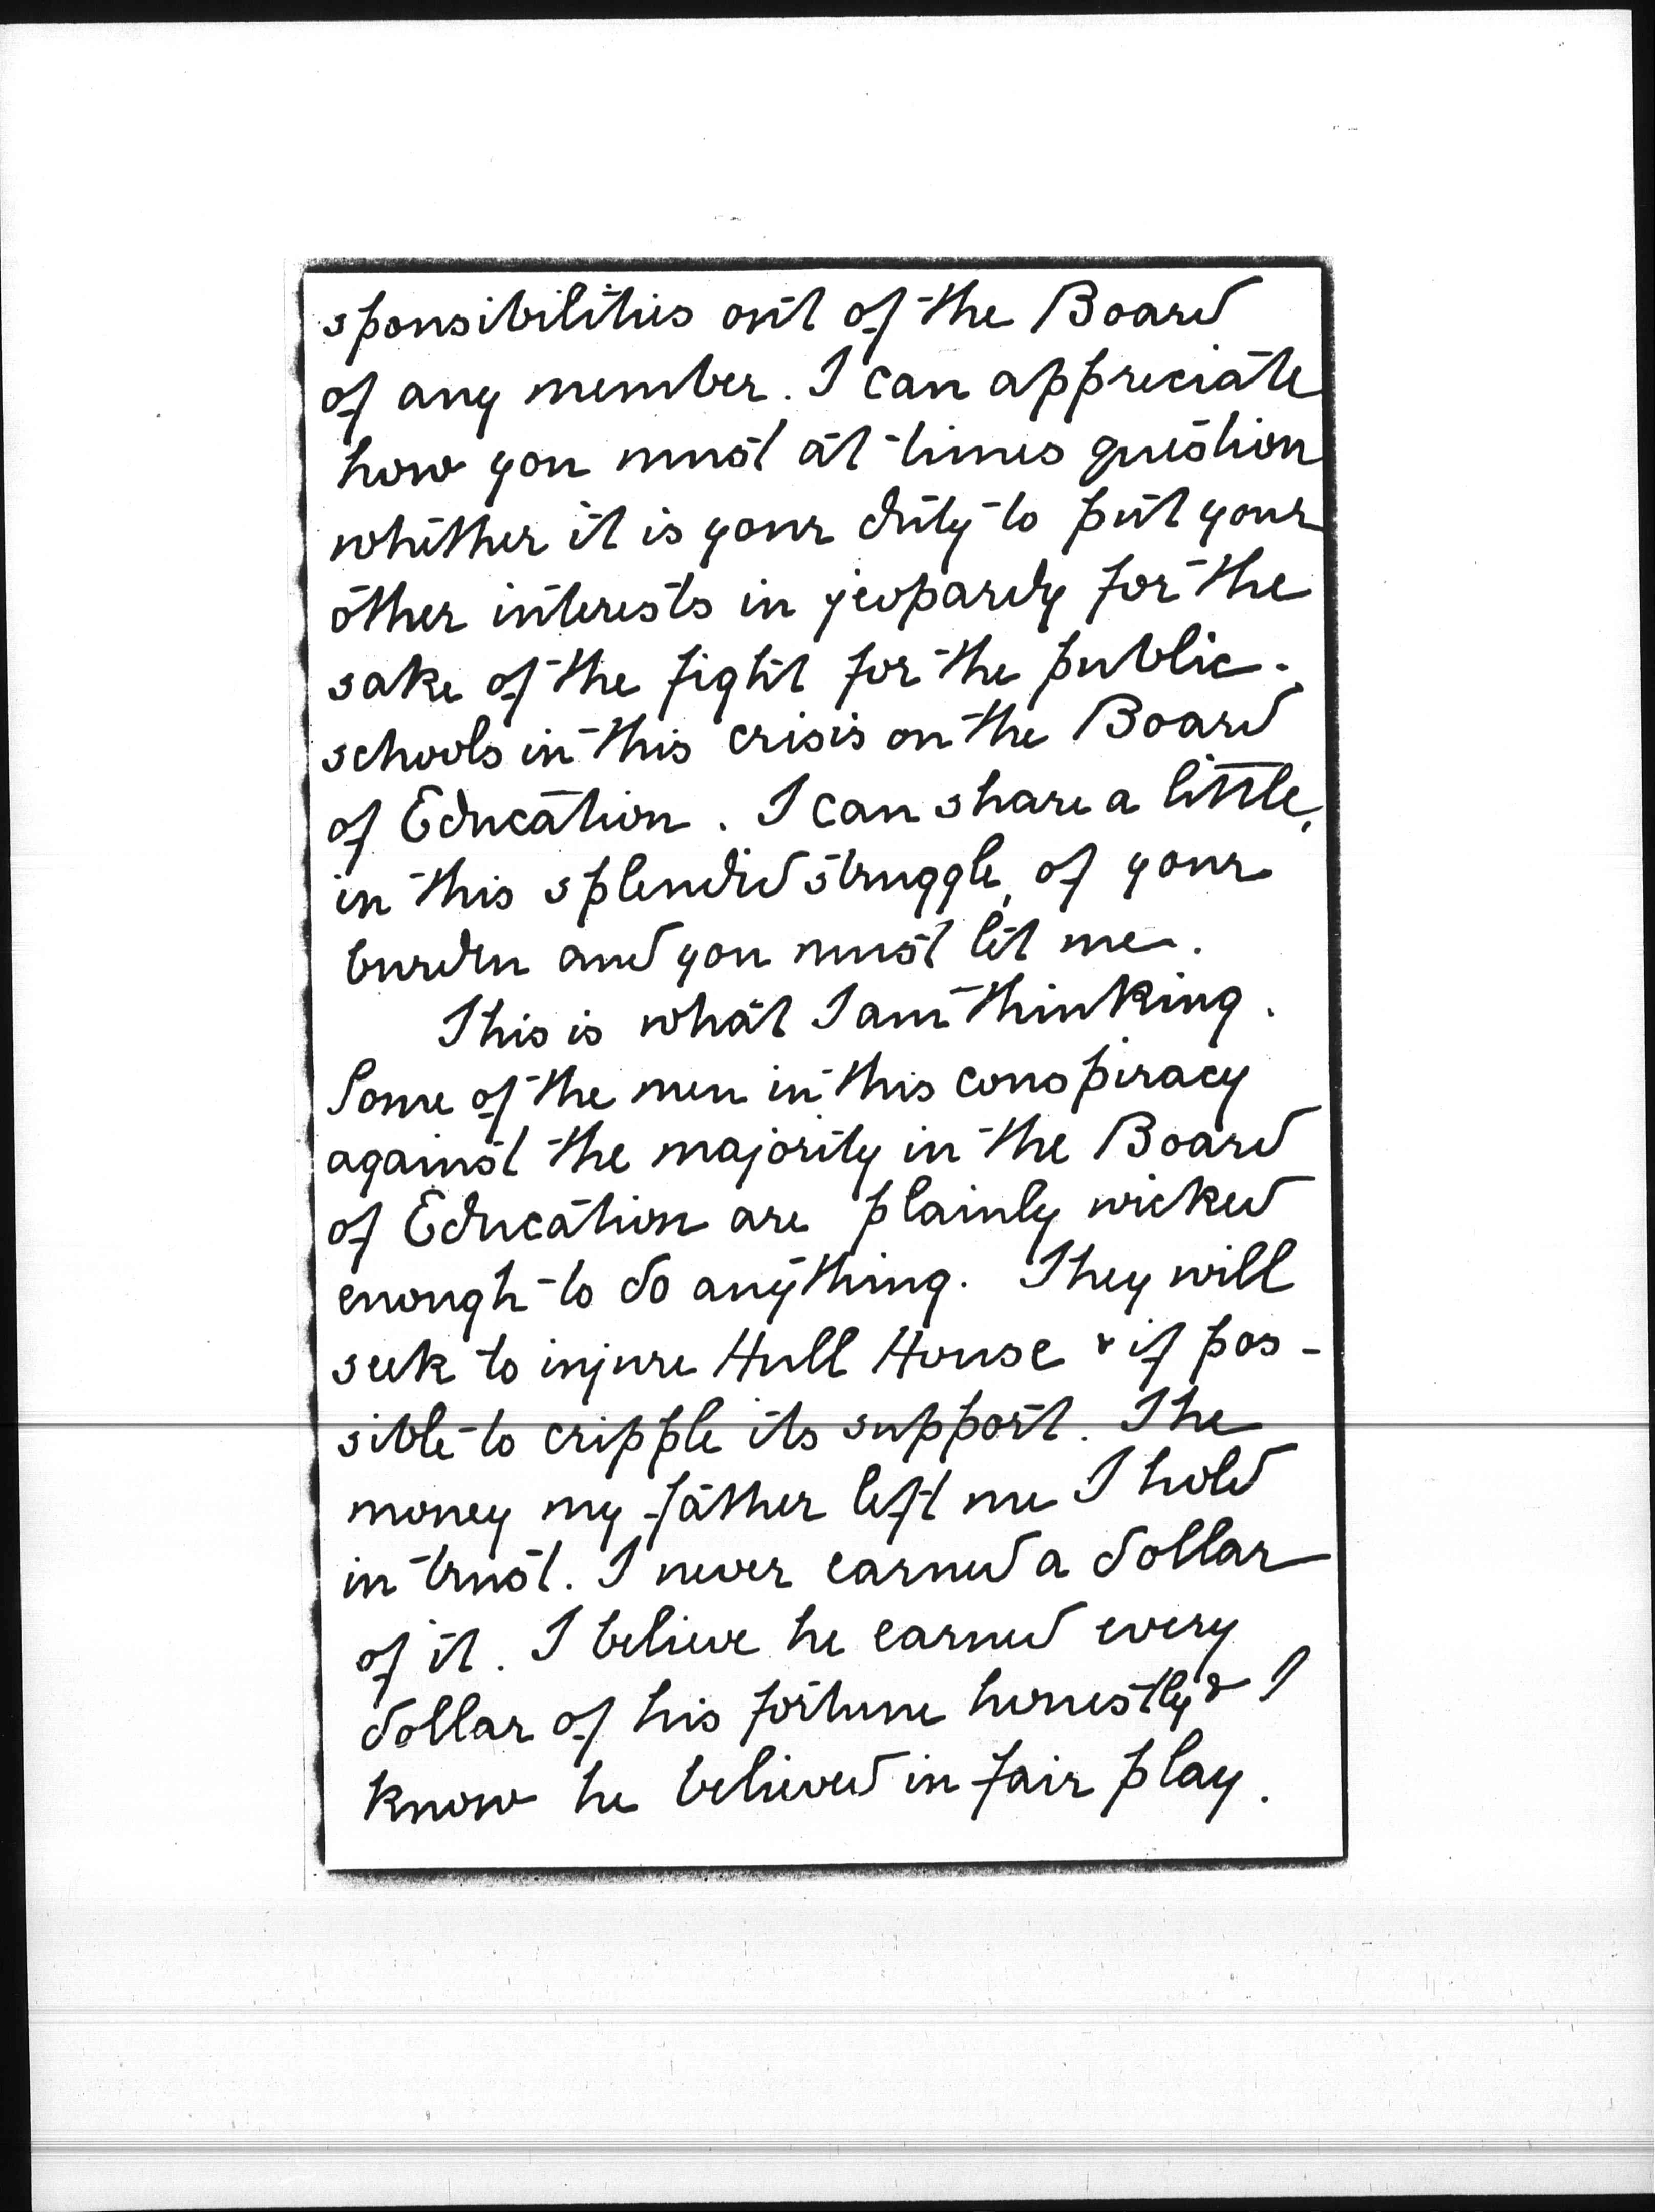 sponsibilities out of the Board
of any member. I can appreciate
how you must at times question
whether it is your duty to put your
other interests in jeopardy for the
sake of the fight for the public-
schools in this crisis on the Board
of Education. I can share a little,
in this splendid struggle, of your
burden and you must let me.
This is what I am thinking.
Some of the men in this conspiracy
against the majority in the Board
of Education are plainly wicked
enough to do anything. They will
seek to injure Hull House & if pos-
sible to cripple its support. The
money my father left me I hold
in trust. I never earned a dollar
of it. I believe he earned every
dollar of his fortune honestly & I
know he believed in fair play.